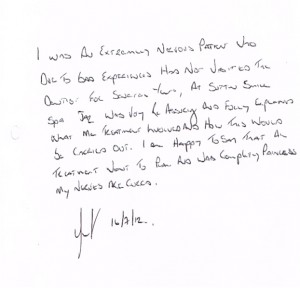 I was an extremely nervous patient who
due to bad experiences has not visited the
dentist for several years, at Sutton Smile
Spa Jag was very reassuring and fully explained
what my treatment involved and how this would
be carried out. I am happy to say that all
treatment went to plan and was completely painless
my nerves are cured.
16/7/12.